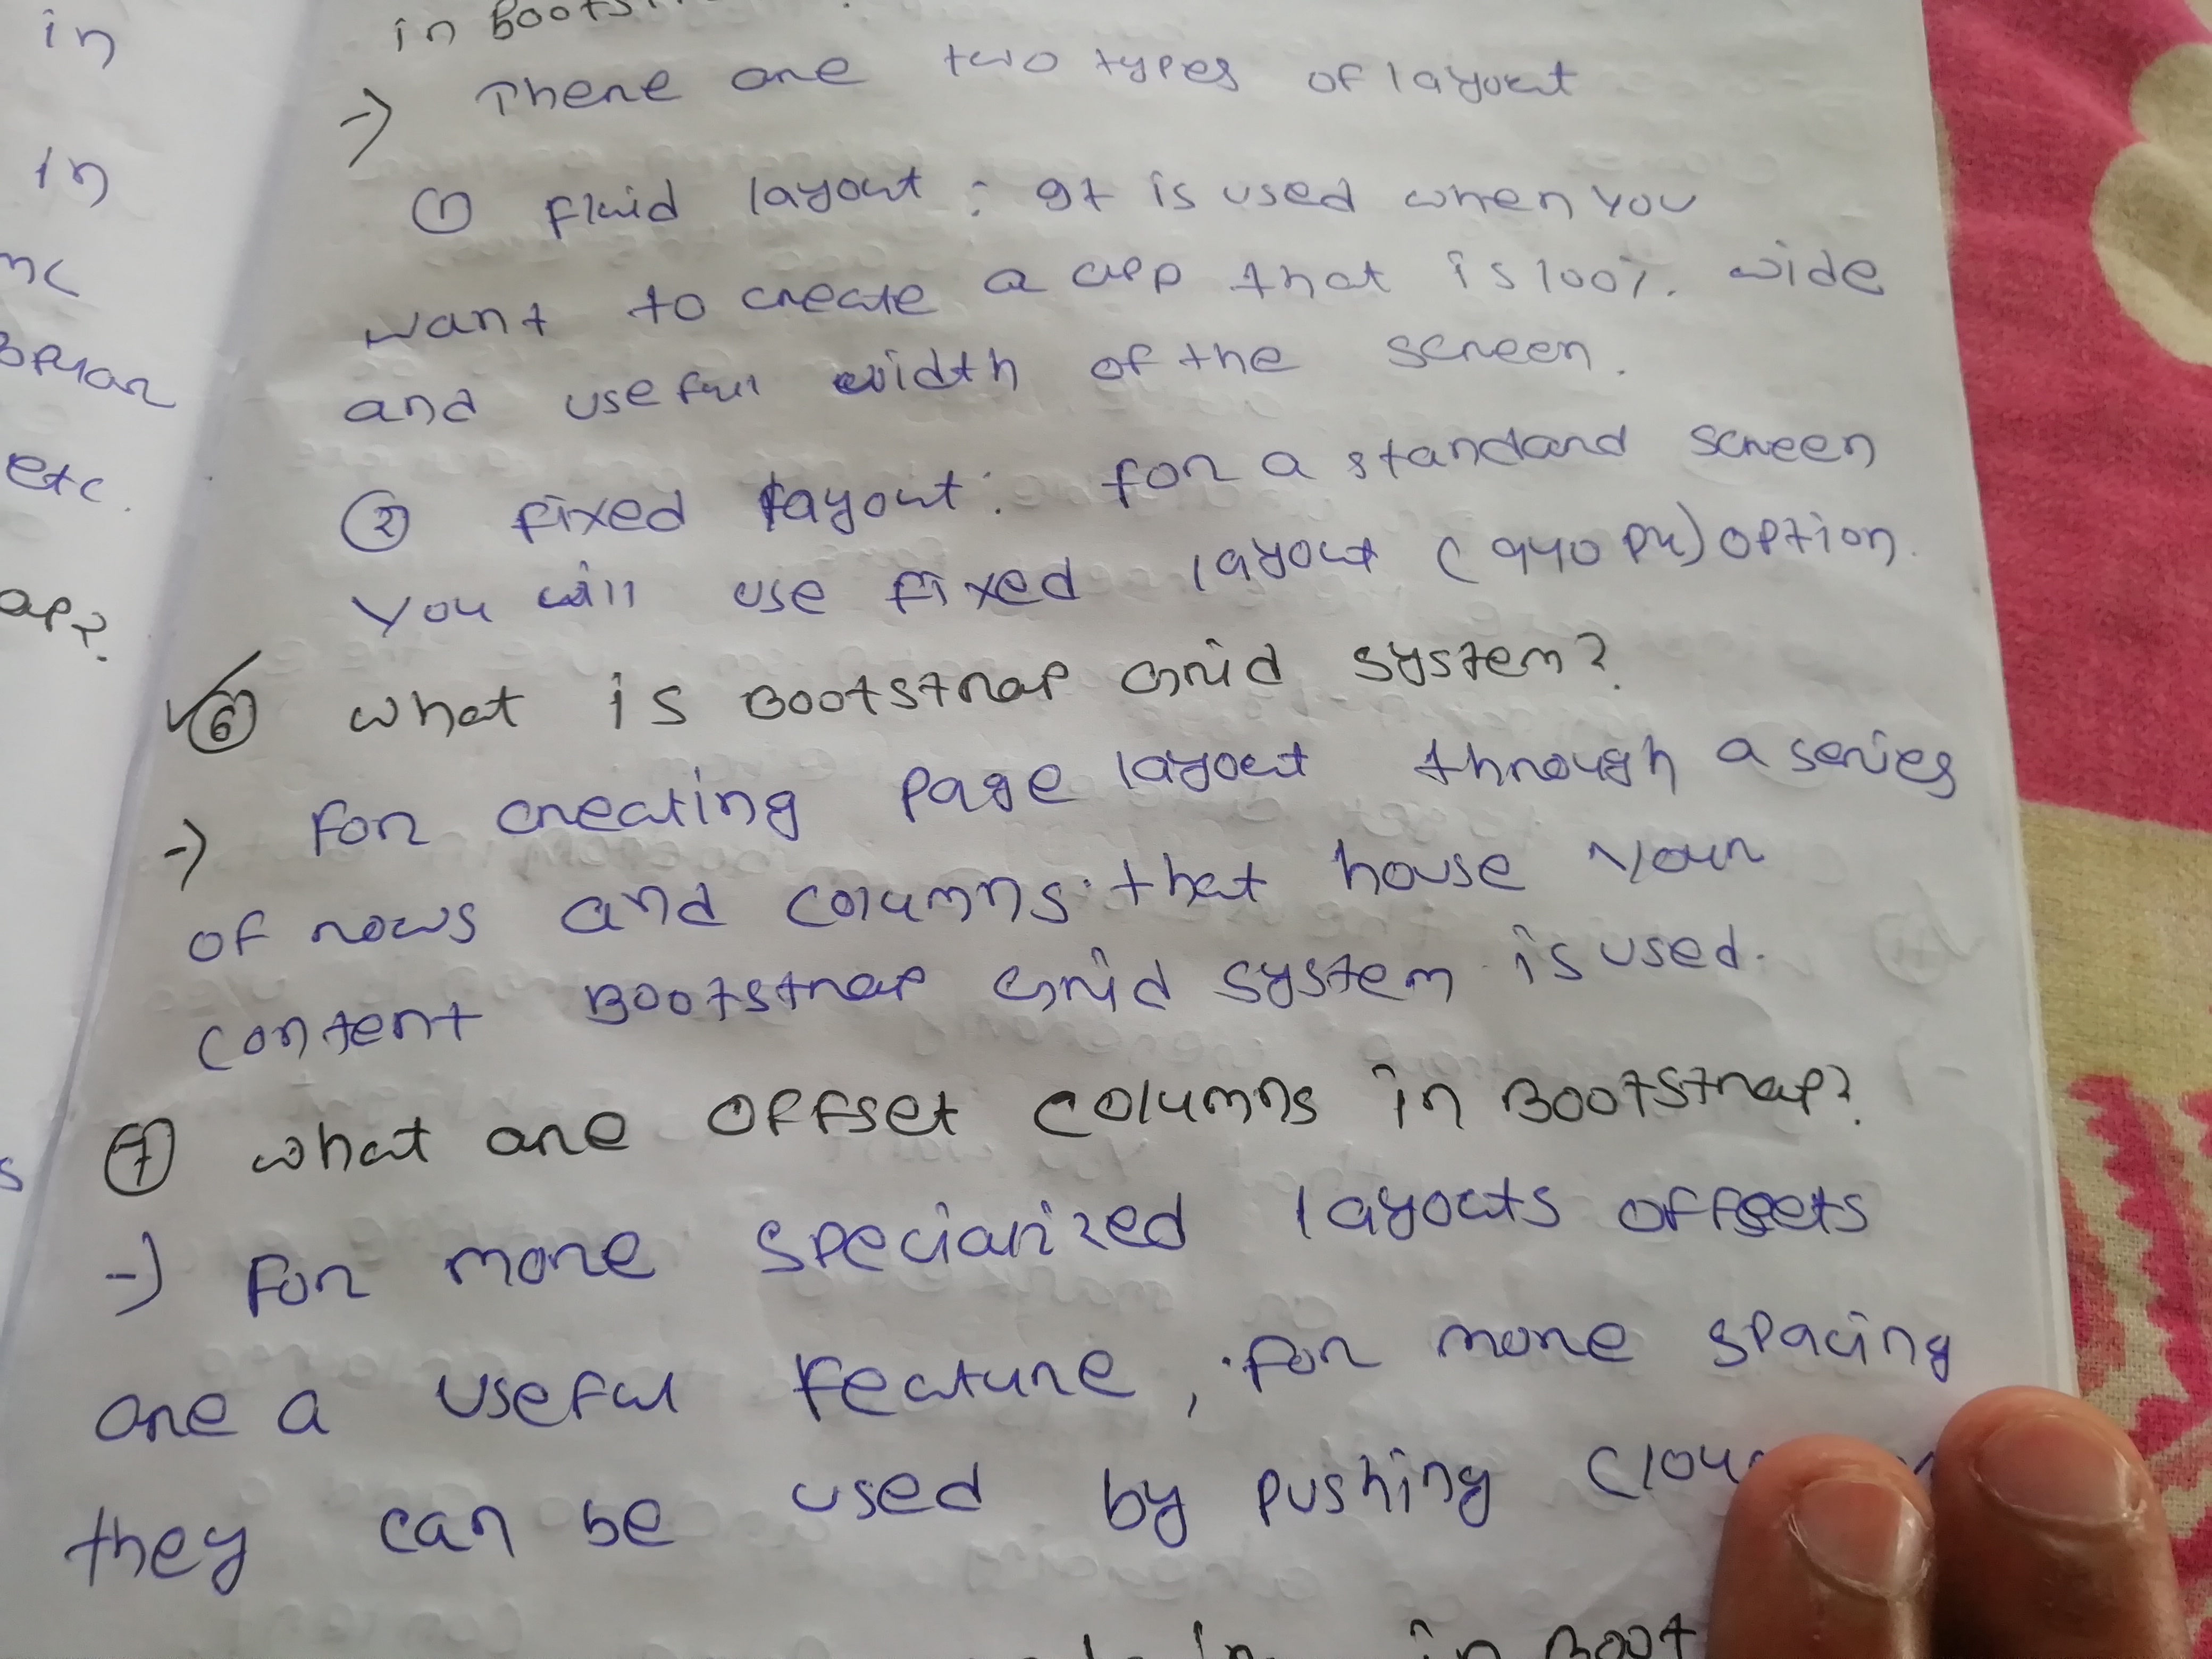 in
in
etc.
ap?
s
in
There are two types of layout
① fluid layout : It is used when you
want to create a app that is 100% wide
and use full width of the screen.
② fixed layout : for a standard screen
you will use fixed layout (940 px) option.
⑥ what is Bootstrap Grid system?
→ For creating page layout through a series
of rows and columns that house your
content Bootstrap Grid system is used.
⑦ what are offset columns in Bootstrap?
→ For more specialized layouts offsets
are a useful feature, for more spacing
they can be used by pushing
in Boot